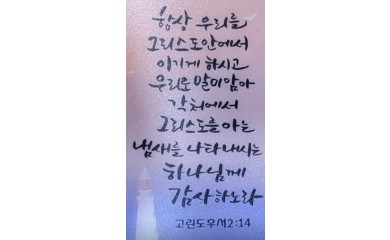 항상 우리를
그리스도안에서
이기게 하시고
우리로 말미암아
각처에서
그리스도를 아는
냄새를 나타내시는
하나님께
감사하노라
고린도후서2:14